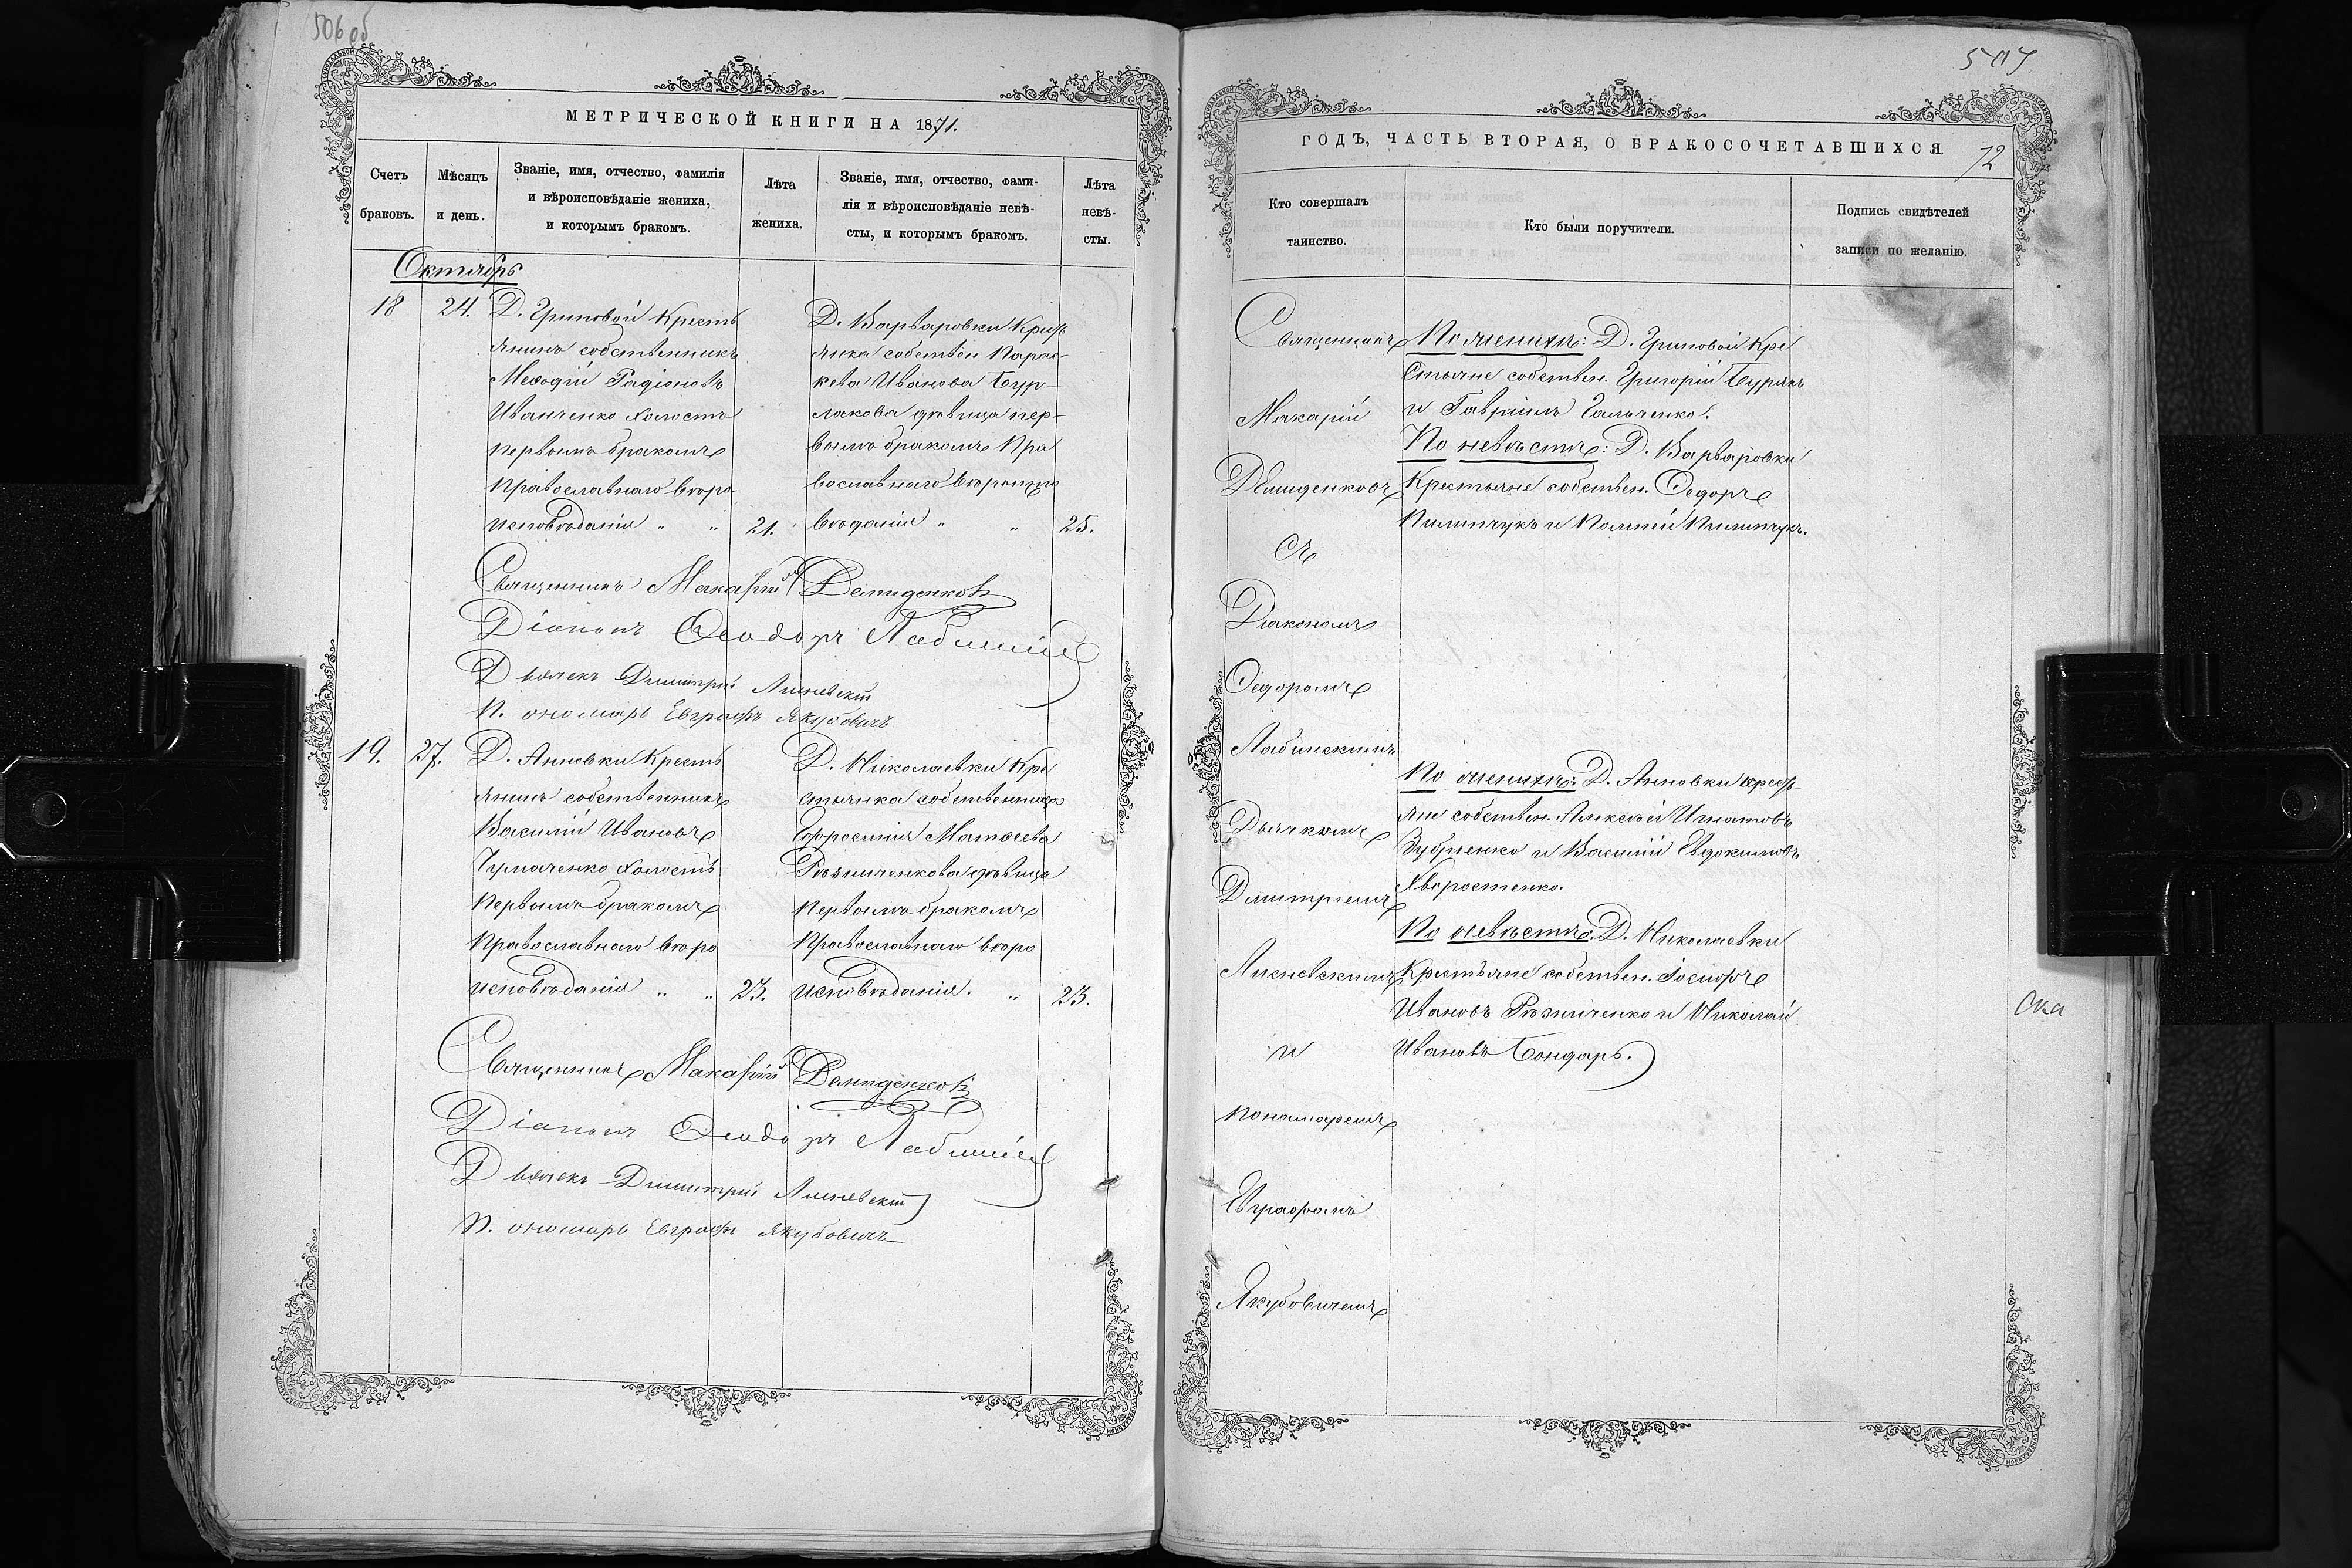 506 об
МЕТРИЧЕСКОЙ КНИГИ НА 1871.
Счетъ браковъ.
Мѣсяцъ и день.
Званіе, имя, отчество, фамилія
и вѣроисповѣданіе жениха,
и которымъ бракомъ.
Лѣта
жениха.
Званіе, имя, отчество, фами-
лія и вѣроисповѣданіе невѣ-
сты, и которымъ бракомъ.
Лѣта
невѣ-
сты.
Октябрь
18 24.
Д. Гриновой Кресть
янинъ собственникъ
Меѳодій Радіоновъ
Иванченко холостъ
первымъ бракомъ
православнаго вѣро-
исповѣданія " " 21.
Д. Варваровки Крест
янка собствен Парас-
кева Иванова Бур-
лакова дѣвица пер-
вымъ бракомъ Пра
вославнаго вѣроиспо
вѣданія " " 25.
Священникъ Макарій Демиденковъ
Діаконъ Ѳеодоръ
Дьячекъ Димитрій Лисневскій
Пономарь Евграфъ Якубовичъ
19. 27.
Д. Анновки Кресть
янинъ собственникъ
Василій Ивановъ
Чумаченко холостъ
первымъ бракомъ
православнаго вѣро
исповѣданія " " 23.
Д. Николаевки Кре
стьянка собственница
Ефросинія Матѳеева
Рѣзниченкова дѣвица
первымъ бракомъ
православнаго вѣро
исповѣданія. " 23.
Священникъ Макарій Демиденковъ
Діаконъ Ѳеодоръ
Дьячекъ Димитрій Лисневскій
Пономарь Евграфъ Якубовичъ
507
ГОДЪ, ЧАСТЬ ВТОРАЯ, О БРАКОСОЧЕТАВШИХСЯ.
72
Кто совершалъ
таинство.
Кто были поручители.
Подпись свидѣтелей
записи по желанію.
Священникъ
Макарій
Демиденковъ
съ
Діакономъ
Ѳедоромъ
Лабинскимъ
Дьячкомъ
Дмитріемъ
Лисневскимъ
и
пономаремъ
Евграфомъ
Якубовичемъ
По женихѣ: Д. Гриновой Кре
стьяне собствен. Григорій Бурлакъ
и Гавріилъ Гальченко.
По невѣстѣ: Д. Варваровки
Крестьяне собствен. Ѳедоръ
Пилипчукъ и Пилипчукъ.
По женихѣ: Д. Анновки крест-
яне собствен. Алексѣй Игнатовъ
Зубренко и Василій Евдокимовъ
Хворостенко.
По невѣстѣ: Д. Николаевки
Крестьяне собствен. Іосифъ
Ивановъ Рѣзниченко и Николай
Ивановъ Бондарь.